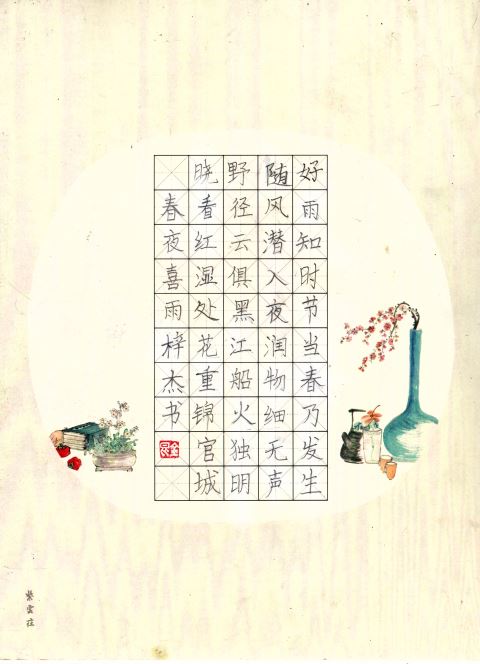 好雨知时节当春乃发生
随风潜入夜润物细无声
野径云俱黑江船火独明
晓看红湿处花重锦官城
春夜喜雨梓杰书